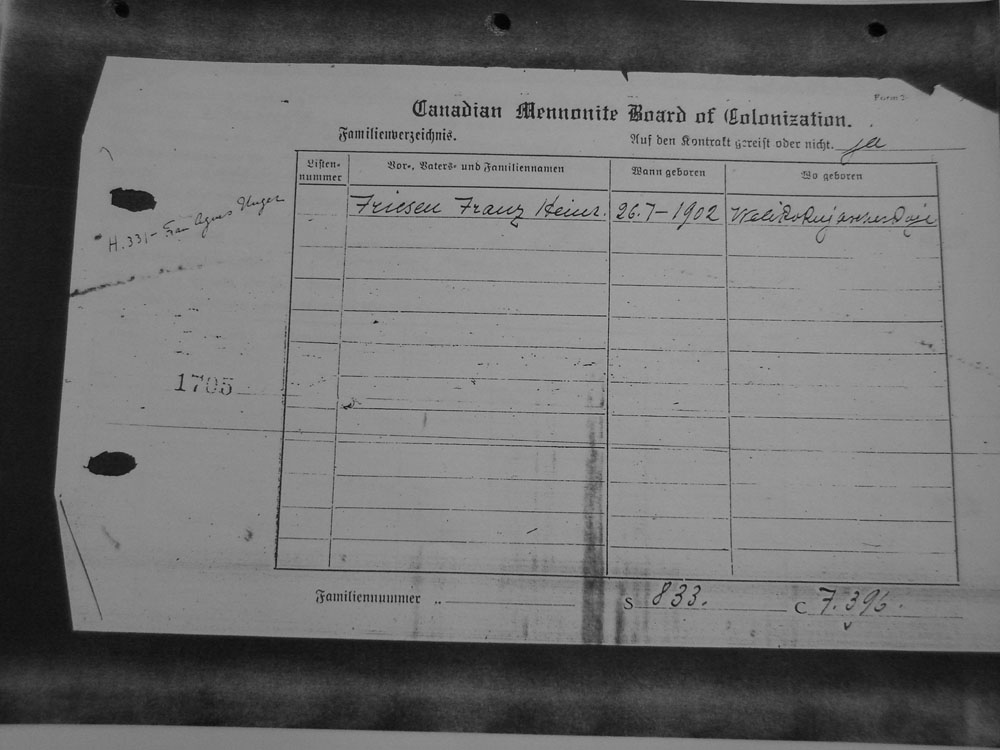 Form 2
Canadian Mennonite Board of Colonization.
Familienverzeichnis.
Auf den Kontrakt gereist oder nicht. ja
Listen-nummer Vor-, Vaters- und Familiennamen Wann geboren Wo geboren
Friesen Franz Heinr. 26.7-1902
H.331- Frau Agnes Unger
1705
Familiennummer „ S 833. C 7.396.